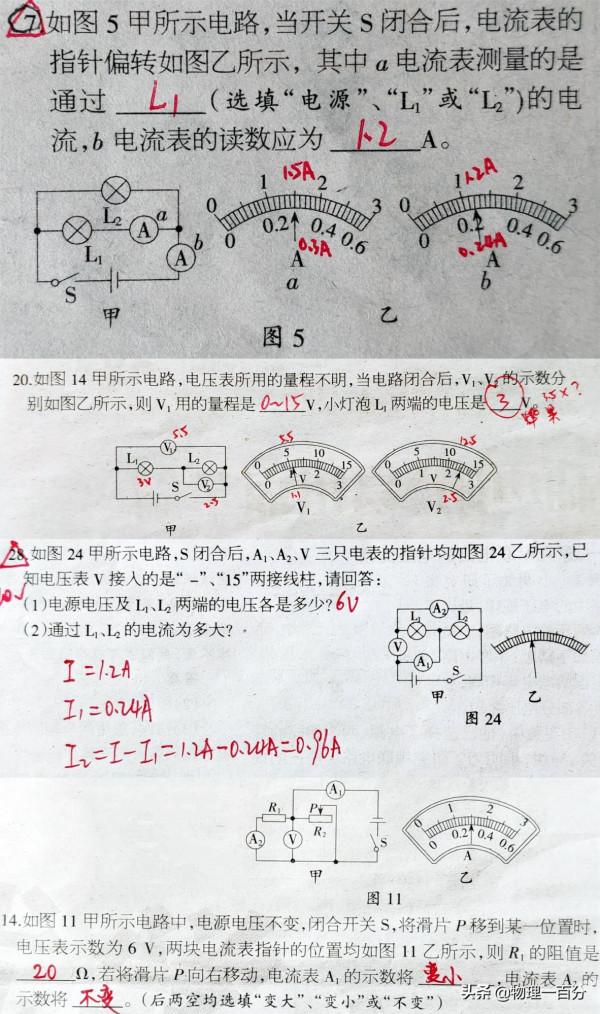 7.如图 5 甲所示电路,当开关 S 闭合后,电流表的
指针偏转如图乙所示,其中 a 电流表测量的是
通过 L₁ (选填“电源”、“L₁”或“L₂”)的电
流,b 电流表的读数应为 1.2 A。
L₂ a
L₁ A b
A
S
甲
1.5A
0 1 2 3
0 0.2 0.4 0.6
0.3A
A
a
1.2A
0 1 2 3
0 0.2 0.4 0.6
0.24A
A
b
乙
图 5
20.如图 14 甲所示电路,电压表所用的量程不明,当电路闭合后,V₁、V₂的示数分
别如图乙所示,则 V₁ 用的量程是 0~15 V,小灯泡 L₁ 两端的电压是 3 V。
5.5
V₁
L₁ L₂
3V S V₂
2.5
甲
5.5
0 5 10 15
0 1 2 3
V
1.1
V₁
12.5
0 5 10 15
0 1 2 3
V
2.5
V₂
乙
28.如图 24 甲所示电路,S 闭合后,A₁、A₂、V 三只电表的指针均如图 24 乙所示,已
知电压表 V 接入的是“－”、“15”两接线柱,请回答:
(1)电源电压及 L₁、L₂ 两端的电压各是多少? 6V
(2)通过 L₁、L₂ 的电流为多大?
I=1.2A
I₁=0.24A
I₂=I-I₁=1.2A-0.24A=0.96A
A₂
L₁ L₂
V
A₁ S
甲
乙
图 24
A₁
R₁ P
R₂
A₂ V S
甲
0 1 2 3
0 0.2 0.4 0.6
A
乙
图 11
14.如图 11 甲所示电路中,电源电压不变,闭合开关 S,将滑片 P 移到某一位置时,
电压表示数为 6 V,两块电流表指针的位置均如图 11 乙所示,则 R₁ 的阻值是
20 Ω,若将滑片 P 向右移动,电流表 A₁ 的示数将 变小 ,电流表 A₂ 的
示数将 不变 。(后两空均选填“变大”、“变小”或“不变”)
头条 @物理一百分